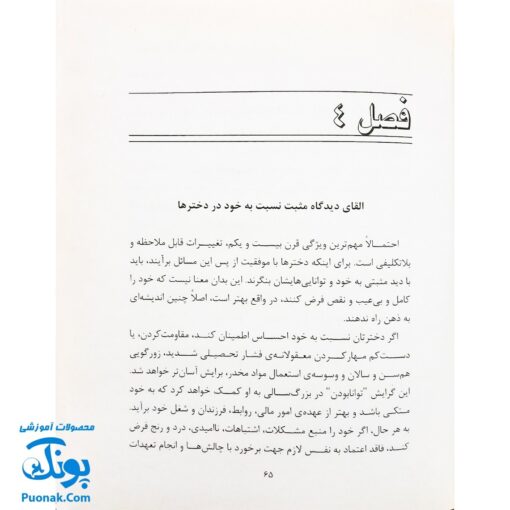 فصل ٤
القای دیدگاه مثبت نسبت به خود در دخترها
احتمـالاً مهم‌ترین ویژگی قرن بیست و یکم، تغییرات قابل ملاحظه و
بلاتکلیفی است. برای اینکه دخترها با موفقیت از پس این مسائل برآیند، باید
با دید مثبتی به خود و توانایی‌هایشان بنگرند. این بدان معنا نیست که خود را
کامل و بی‌عیب و نقص فرض کنند، در واقع بهتر است، اصلاً چنین اندیشه‌ای
به ذهن راه ندهند.
اگر دخترتان نسبت به خود احساس اطمینان کند، مقاومت‌کردن، یا
دست‌کم مهارکردن معقولانه‌ی فشار تحصیلی شدید، زورگویی
هم‌سن و سالان و وسوسه‌ی استعمال مواد مخدر، برایش آسان‌تر خواهد شد.
این گرایش "توانابودن" در بزرگ‌سالی به او کمک خواهد کرد که به خود
متکی باشد و بهتر از عهده‌ی امور مالی، روابط، فرزندان و شغل خود برآید.
به هر حال، اگر خود را منبع مشکلات، اشتباهات، ناامیدی، درد و رنج فرض
کنـد، فاقد اعتماد به نفس لازم جهت برخورد با چالش‌ها و انجام تعهدات
۶۵
محصولات آموزشی
پونک
Puonak.Com